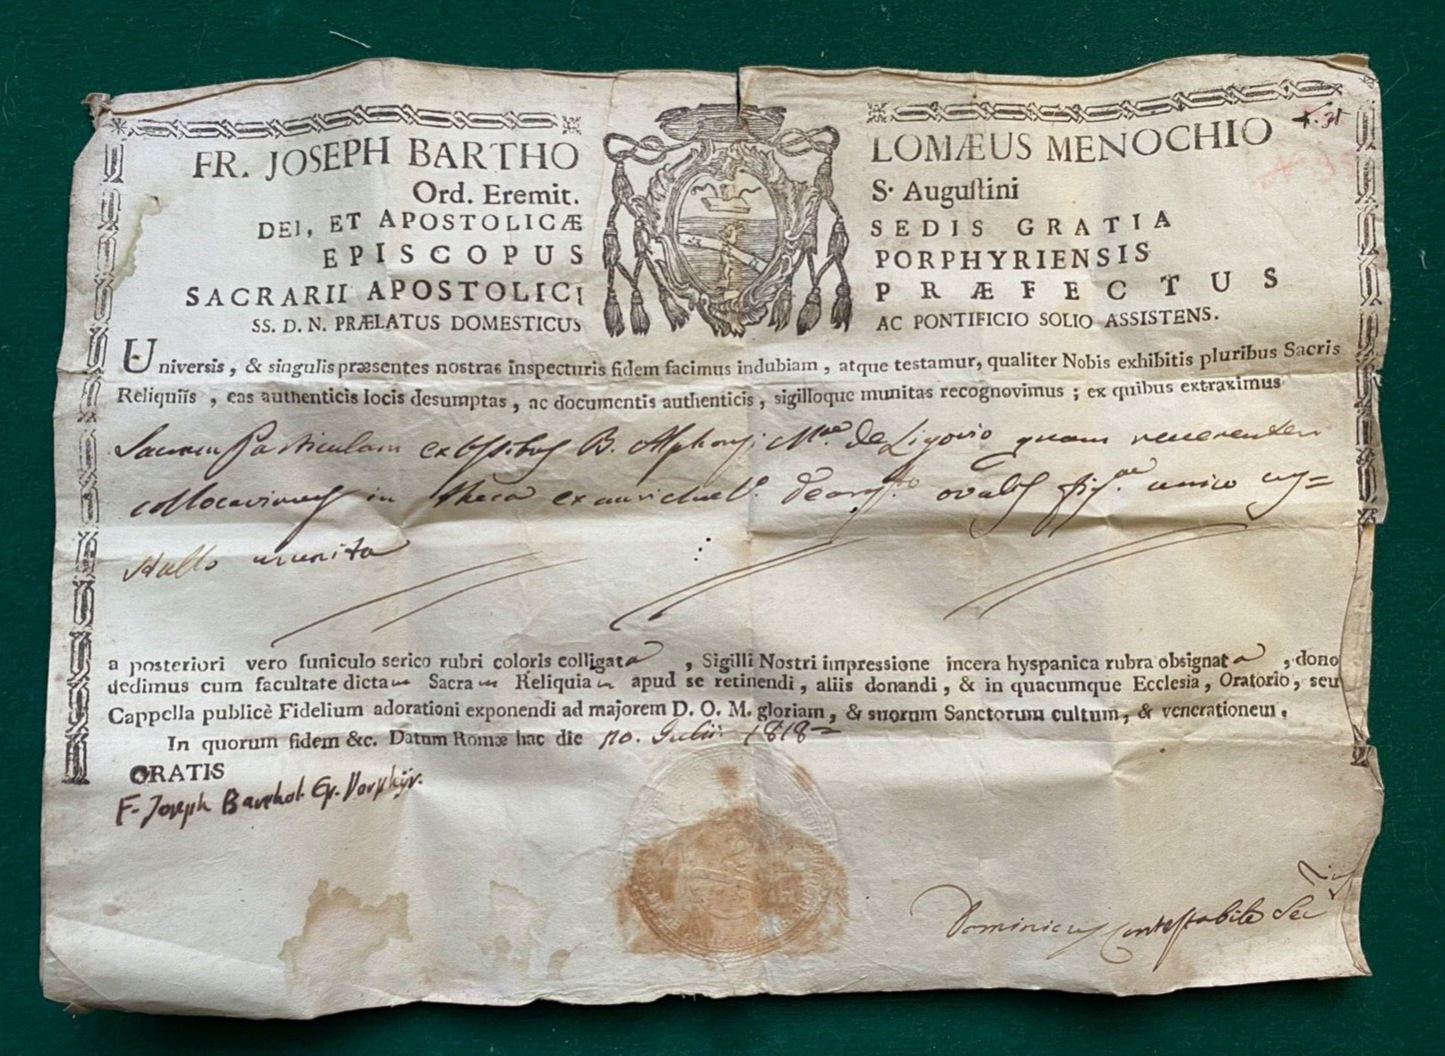 FR. JOSEPH BARTHO LOMÆUS MENOCHIO
Ord. Eremit. S. Auguſtini
DEI, ET APOSTOLICÆ SEDIS GRATIA
EPISCOPUS PORPHYRIENSIS
SACRARII APOSTOLICI PRÆFECTUS
SS. D. N. PRÆLATUS DOMESTICUS AC PONTIFICIO SOLIO ASSISTENS.
Universis, & singulis præsentes nostras inspecturis fidem facimus indubiam, atque testamur, qualiter Nobis exhibitis pluribus Sacris
Reliquiis, eas authenticis locis desumptas, ac documentis authenticis, sigilloque munitas recognovimus; ex quibus extraximus
Sacram Particulam ex Ossibus B. Alphonsi Mae de Ligorio quam reverenter
collocavimus in theca ex aurichal. de arg.to ovalis fig.ae unico cry=
stallo munita
a posteriori vero funiculo serico rubri coloris colligata, Sigilli Nostri impressione incera hyspanica rubra obsignata, dono
dedimus cum facultate dictam Sacram Reliquiam apud se retinendi, aliis donandi, & in quacumque Ecclesia, Oratorio, seu
Cappella publicè Fidelium adorationi exponendi ad majorem D. O. M. gloriam, & suorum Sanctorum cultum, & venerationem.
In quorum fidem &c. Datum Romæ hac die 10. Julii 1818
GRATIS
F. Joseph Barthol. Ep. Porphyr.
Dominicus Contestabile Sec